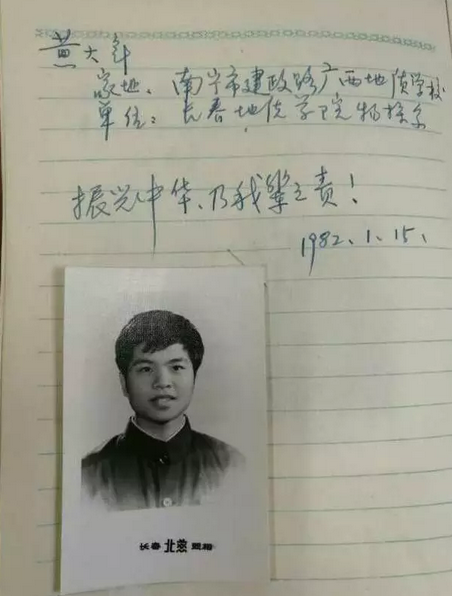 黄大年
家址：南宁市建政路广西地质学校
单位：长春地质学院物探系
振兴中华、乃我辈之责！
1982.1.15.
长春 北燕 照相